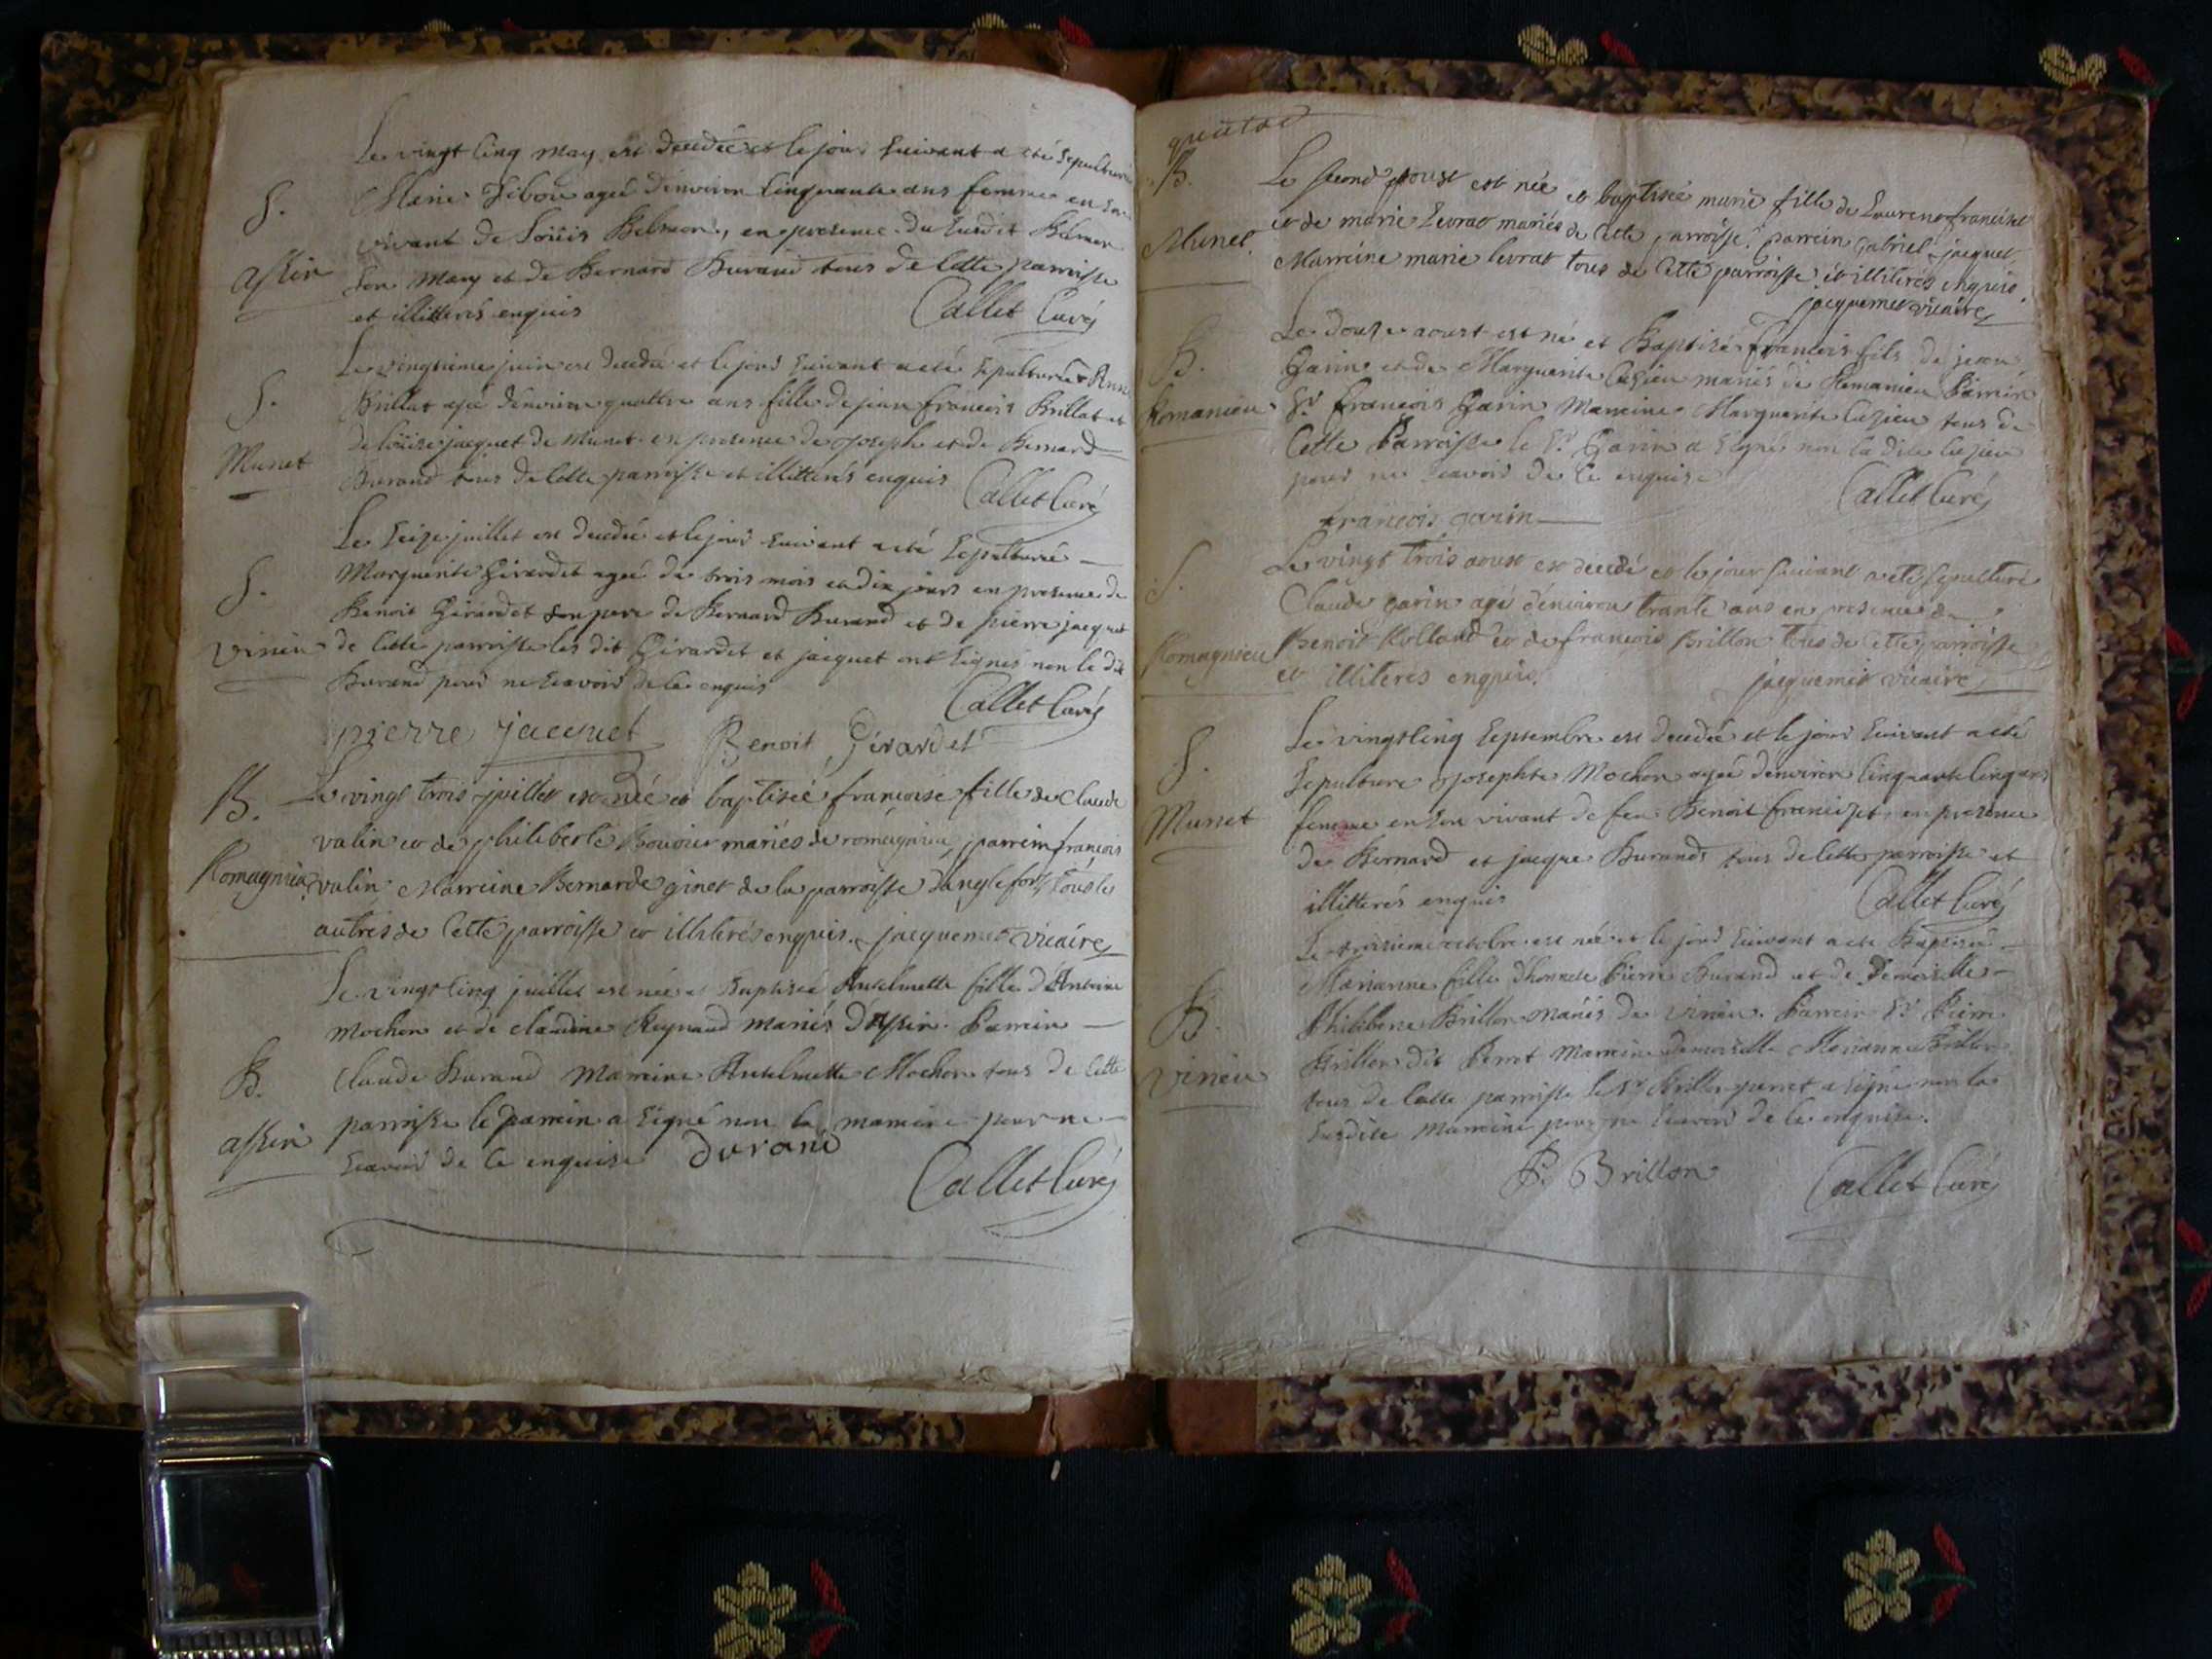 Le vingt cinq may est decedée et le jour suivant a été sepulturée
S.
Marie agée d'environ cinquante ans femme en son
vivant de Loüis Belmon, en presence du susdit Belmon
assin
son mary et de Bernard Durand tous de cette parroisse
et illitterés enquis
Callet Curé
Le vingtieme juin est decedée et le jour suivant a été sepulturée Anne
S.
Brillat agée d'environ quattre ans fille de jean françois Brillat et
de loüise jacquet de Munet en presence de joseph et de Bernard
Munet
Durand tous de cette parroisse et illitterés enquis
Callet Curé
Le seize juillet est decedée et le jour suivant a été sepulturée
Marguerite Girardet agée de trois mois et dix jours en presence de
S.
Benoit Girardet son pere de Bernard Durand et de pierre jacquet
Virieu
de cette parroisse les dit Girardet et jacquet ont signés non le dit
Durand pour ne scavoir de ce enquis
Callet Curé
pierre jacquet Benoit Girardet
B.
Le vingt trois juillet est née et baptiseé francoise fille de Claude
valin et de philiberte Bouvier mariés de romagnieu parrein françois
Romagnieu
valin Marreine Bernarde ginet de la parroisse d'anglefort, tous les
autres de cette parroisse et illiterés enquis. jacquemet vicaire
Le vingt cinq juillet est née et Baptisée Antelmette fille d'Antoine
Mochon et de claudine Reynaud mariés d'assin. Parrein
B.
Claude Durand Marreine Antelmette Mochon tous de cette
assin
parroisse le parrein a signé non la marreine pour ne
scavoir de ce enquise durand
Callet Curé
B.
Le second aoust est née et baptisée marie fille de Laurent franciset
Munet.
et de marie Levrat mariés de cette parroisse. parrein Gabriel jacquet
Marreine marie levrat tous de cette parroisse et illiterés enquis.
jacquemet vicaire
Le douze aoust est né et Baptisé françois fils de
B.
Garin et de Marguerite Cusieu mariés de Romanieu Parrein
Romanieu
Sr. françois Garin Marreine Marguerite Cusieu tous de
cette Parroisse le Sr. Garin a signé non la dite Cusieu
pour ne scavoir de ce enquise
Callet Curé
françois garin
S.
Le vingt trois aoust est decedé et le jour suivant a eté sepulturé
Claude garin agé d'environ trante ans en presence de
Romagnieu
Benoit Rolland et de francois Brillon tous de cette parroisse
et illiterés enquis.
jacquemet vicaire
Le vingt cinq septembre est decedée et le jour suivant a été
S.
sepulturé josephte Mochon agée d'environ cinquante cinq ans
Munet
femme en son vivant de feu Benoit francizet, en presence
de Bernard et jacque Durands tous de cette parroisse et
illitterés enquis
Callet Curé
Le octobre est née et le jour suivant a été Baptisée
Marianne fille d'honnete Pierre Durand et de Demoiselle
B.
Philiberte Brillon mariés de Virieu. Parrein Sr. Pierre
Virieu
Brillon dit Perret Marreine Demoiselle Marianne Brillon
tous de cette parroisse le Sr. Brillon perret a signé non la
susdite Marreine pour ne scavoir de ce enquise.
P. Brillon
Callet Curé